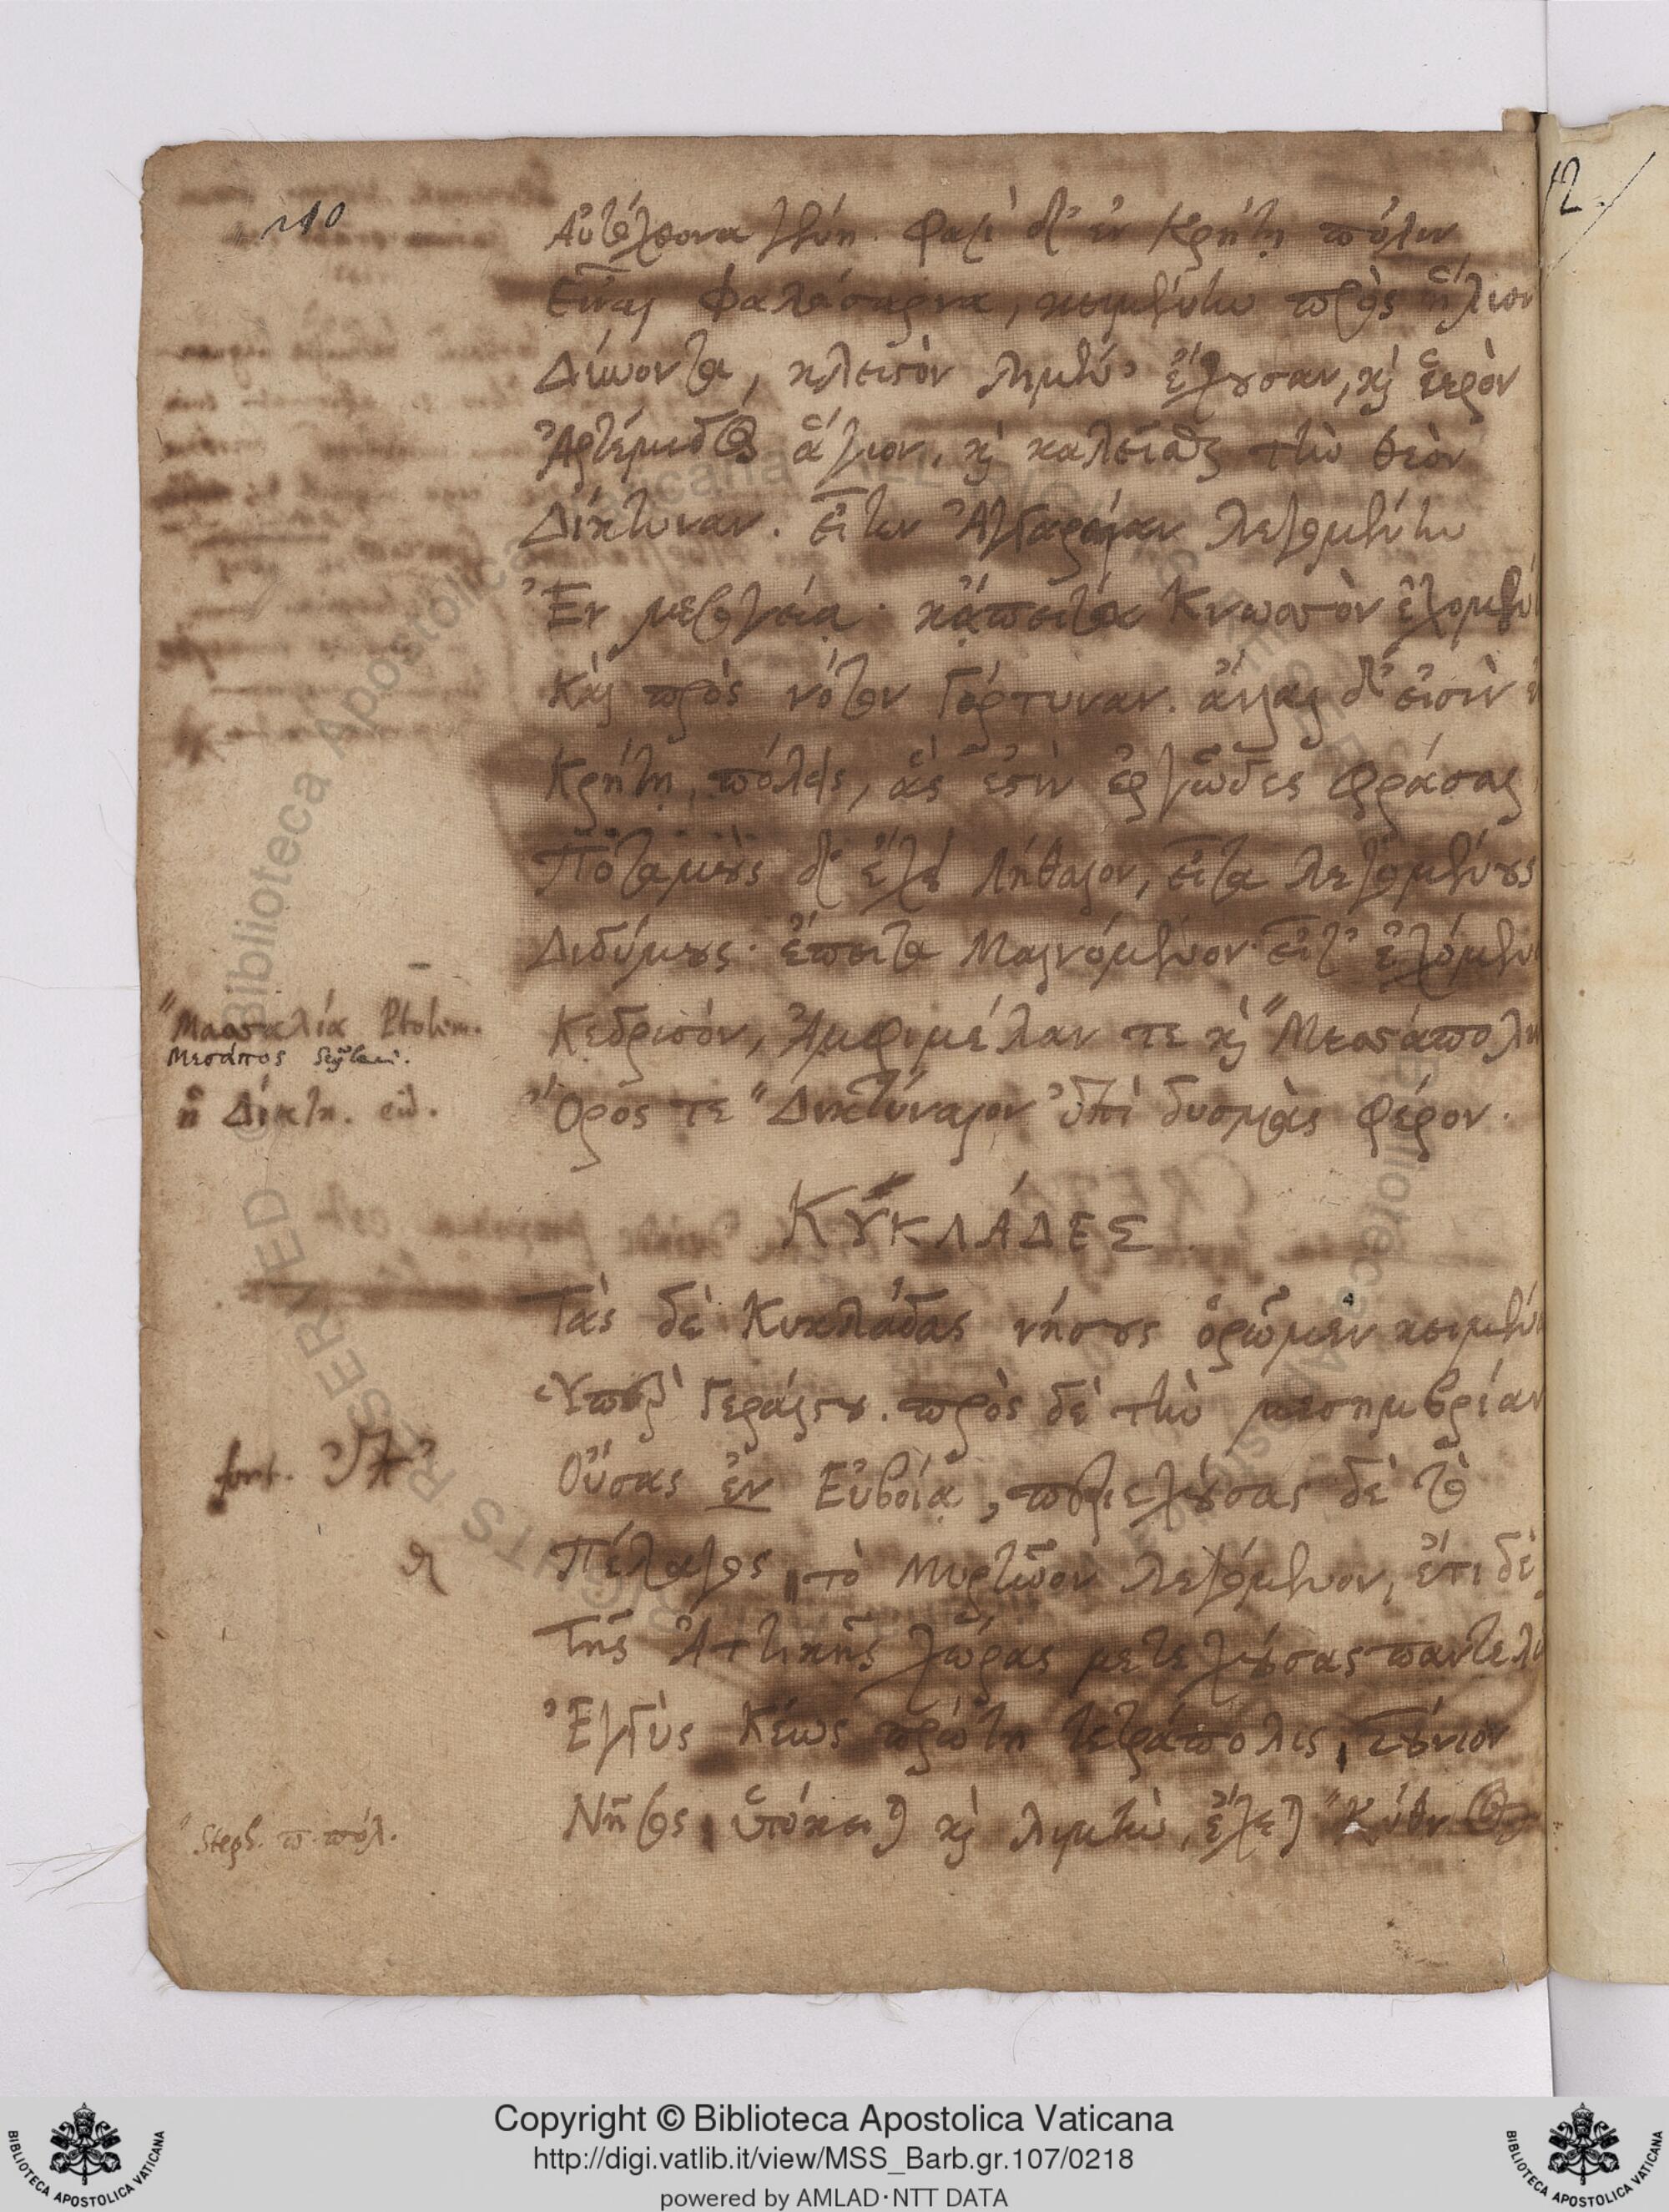 110
12
Αὐτόχθονα γένη. Φασὶ δ' ἐν Κρήτῃ πόλιν
Εἶναι Φαλάσαρνα, κειμένην πρὸς ἥλιον
Δύνοντα, κλειστὸν λιμέν' ἔχουσαν, καὶ ἱερὸν
Ἀρτέμιδος ἅγιον, καὶ καλεῖσθαι τὴν θεὸν
Δίκτυναν. εἶτεν λεγομένην
Ἐν μεσογείᾳ. κἄπειτα Κνωσσὸν ἐχομέν
Καὶ πρὸς νότον Γόρτυναν. ἄλλαι δ' εἰσὶν ἐν
Κρήτῃ πόλεις, ἅς ἐστὶν ἐργῶδες φράσαι
Ποταμοὺς δ' ἔχει Ληθαῖον, εἶτα λεγομένους
Διδύμους. ἔπειτα Μαινόμενον. εἶτ' ἐχόμεν
Κεδρισόν, Ἀμφιμέλαν τε καὶ "Μεσσάπολιν
Ὄρος τε "Δικτύναιον ἐπὶ δυσμὰς φέρον.
"Μασσαλία Ptolem.
Μεσάπος Scylaci.
ἢ Δίκτη.
ΚΥΚΛΆΔΕΣ
Τὰς δὲ Κυκλάδας νήσους ὁρῶμεν κειμέν
Ὑπὲρ Γεραίστου. πρὸς δὲ τὴν μεσημβρίαν
Οὔσας ἐν Εὐβοίᾳ, περιεχούσας δὲ τὸ
Πέλαγος τὸ Μυρτῷον λεγόμενον, ἔτι δὲ
Τῆς Ἀττικῆς χώρας μετεχούσας παντελ
Ἐγγὺς Κέως πρώτη τετράπολις,
Νῆσος, ὑπόκειται καὶ λιμὴν, ἔχεται "Κύθνος
fort.
Steph. π. πόλ.
Copyright © Biblioteca Apostolica Vaticana
http://digi.vatlib.it/view/MSS_Barb.gr.107/0218
powered by AMLAD·NTT DATA
BIBLIOTECA APOSTOLICA VATICANA
BIBLIOTECA APOSTOLICA VATICANA